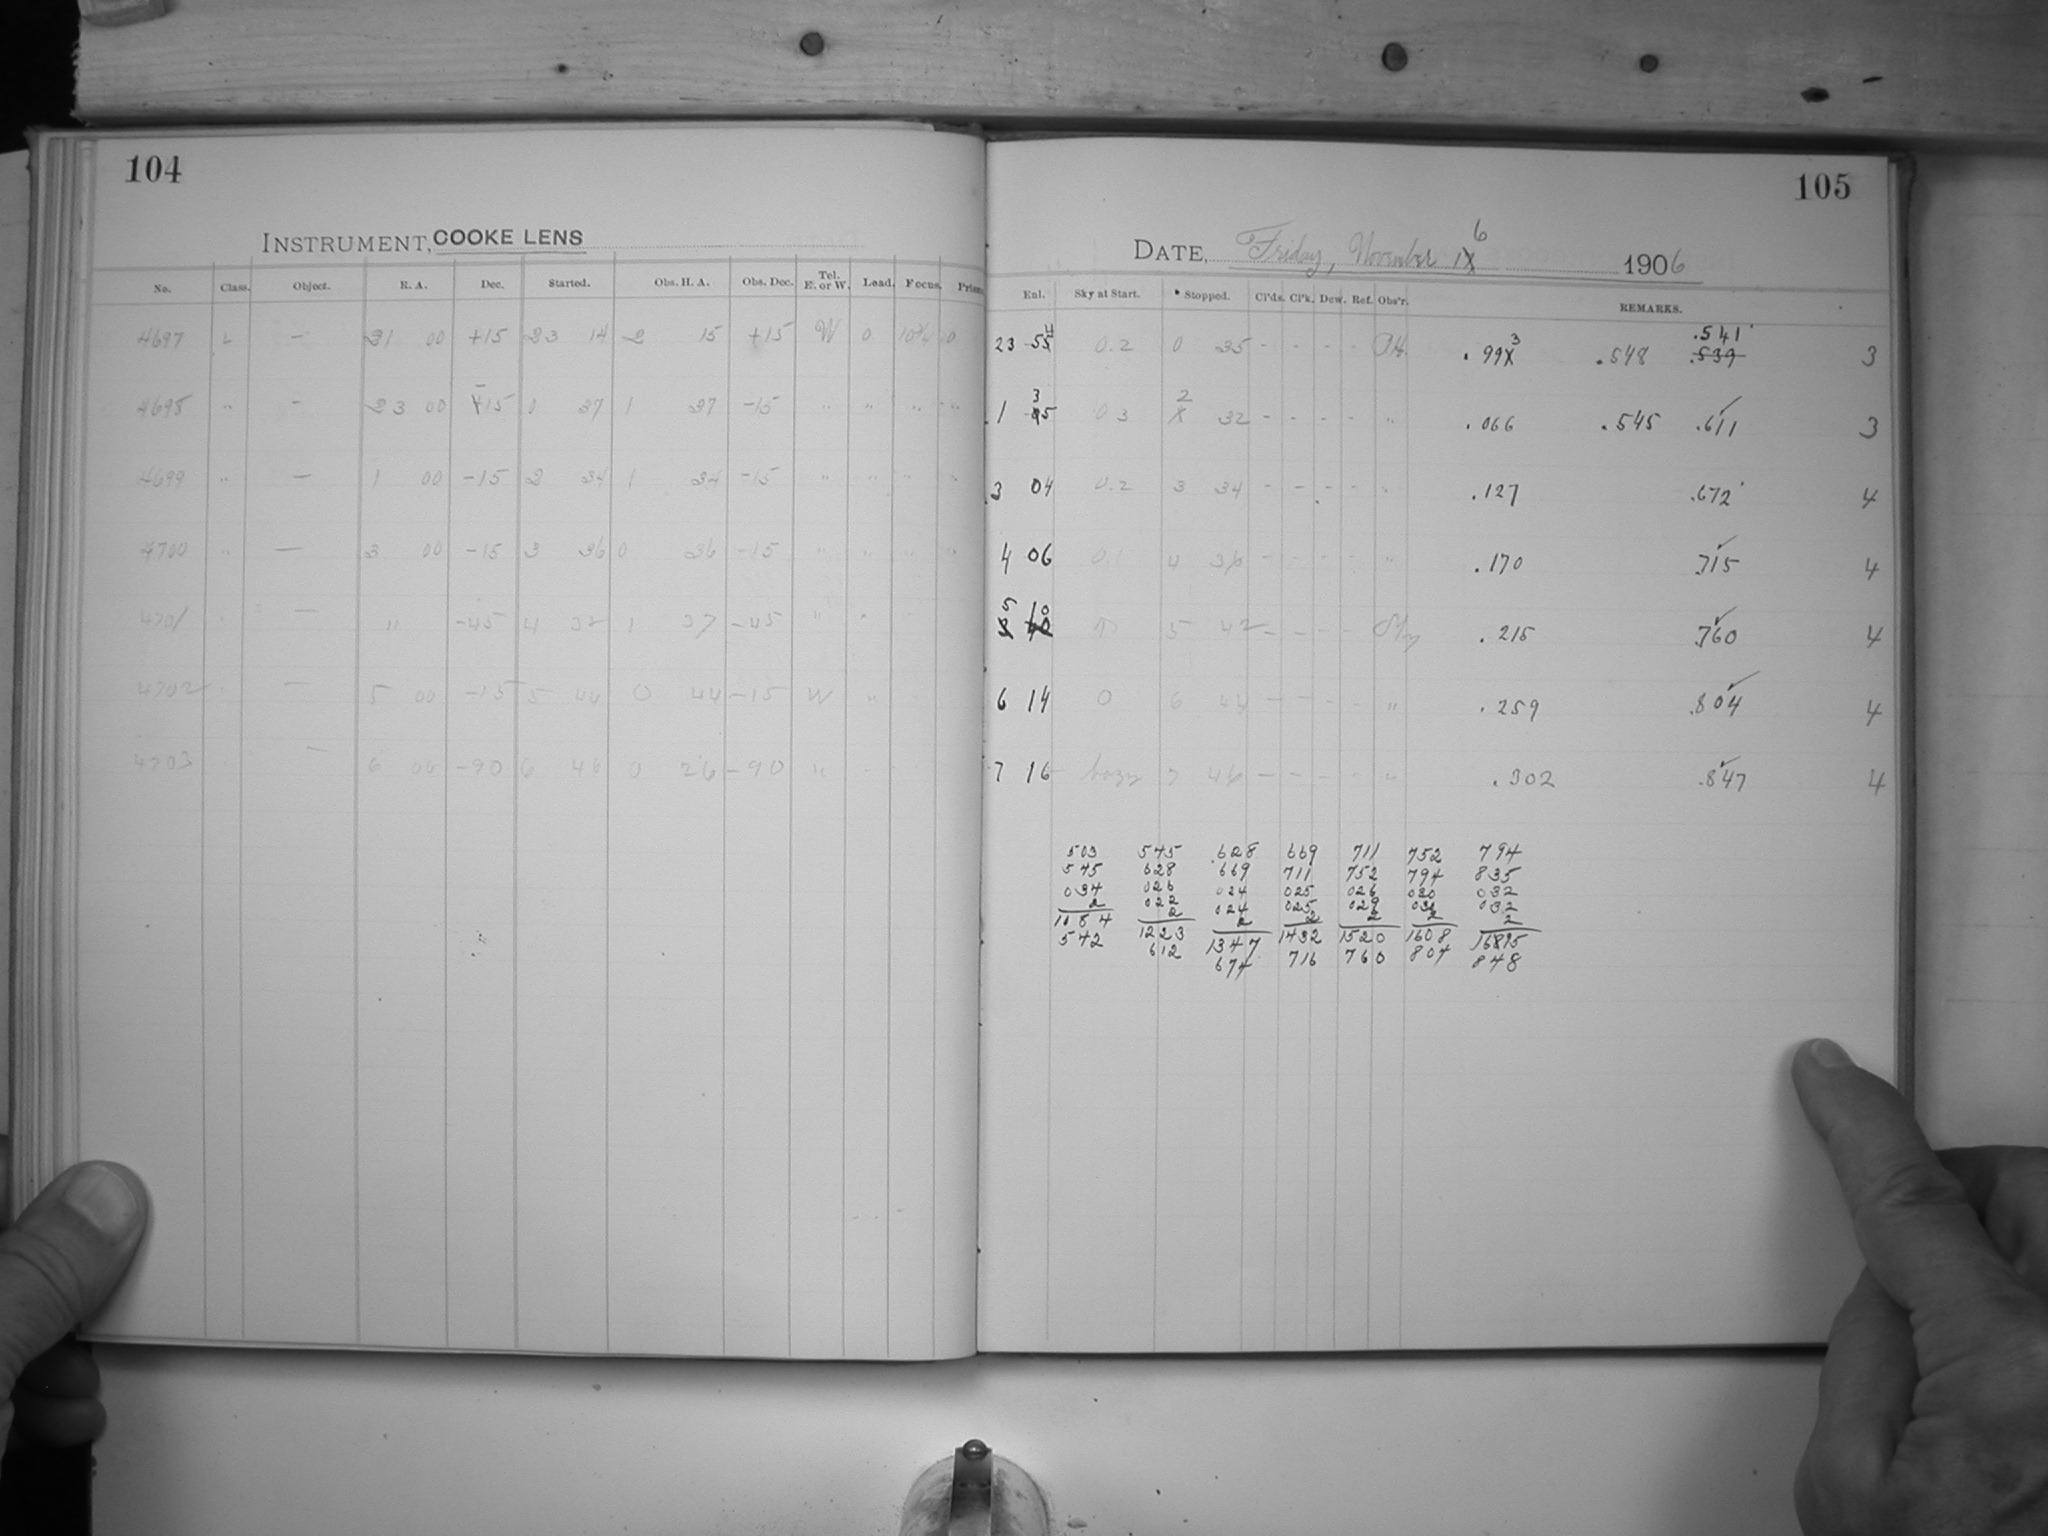 104
INSTRUMENT, COOKE LENS
No. Class. Object. R. A. Dec. Started. Obs. H. A. Obs. Dec. Tel. E. or W. Load. Focus. Prism
4697 L — 21 00 +15 23 14 2 15 +15 W 0 10¾ 0
4698 " — 23 00 -15 1 37 1 37 -15 " " " "
4699 " — 1 00 -15 2 34 1 34 -15 " " " "
4700 " — 3 00 -15 3 36 0 36 -15 " " " "
4701 — " -45 4 37 1 37 -45 "
4702 — 5 00 -15 5 44 0 44 -15 W "
4703 — 6 00 -90 6 46 0 26 -90 "
105
DATE, Friday, November 16 1906
Enl. Sky at Start. Stopped. Cl'ds. Cl'k. Dew. Ref. Obs'r. REMARKS.
23 54 0.2 0 35 - - - - .993 .548 .541 .539 3
1 35 0 3 2 32 - - - - " .066 .545 .611 3
3 04 0.2 3 34 - - - - " .127 .672 4
4 06 0.1 4 36 - - - - " .170 .715 4
5 10 5 42 - - - - .215 .760 4
6 14 0 6 44 - - - - " .259 .804 4
7 16 hazy 7 46 - - - - " .302 .847 4
503 545 .628 669 711 752 794
545 628 669 711 752 794 835
034 026 024 025 026 030 032
2 022 024 025 029 030 032
2 2 2 2 2 2
1084 1223 1347 1432 1520 1608 1695
542 612 674 716 760 804 848